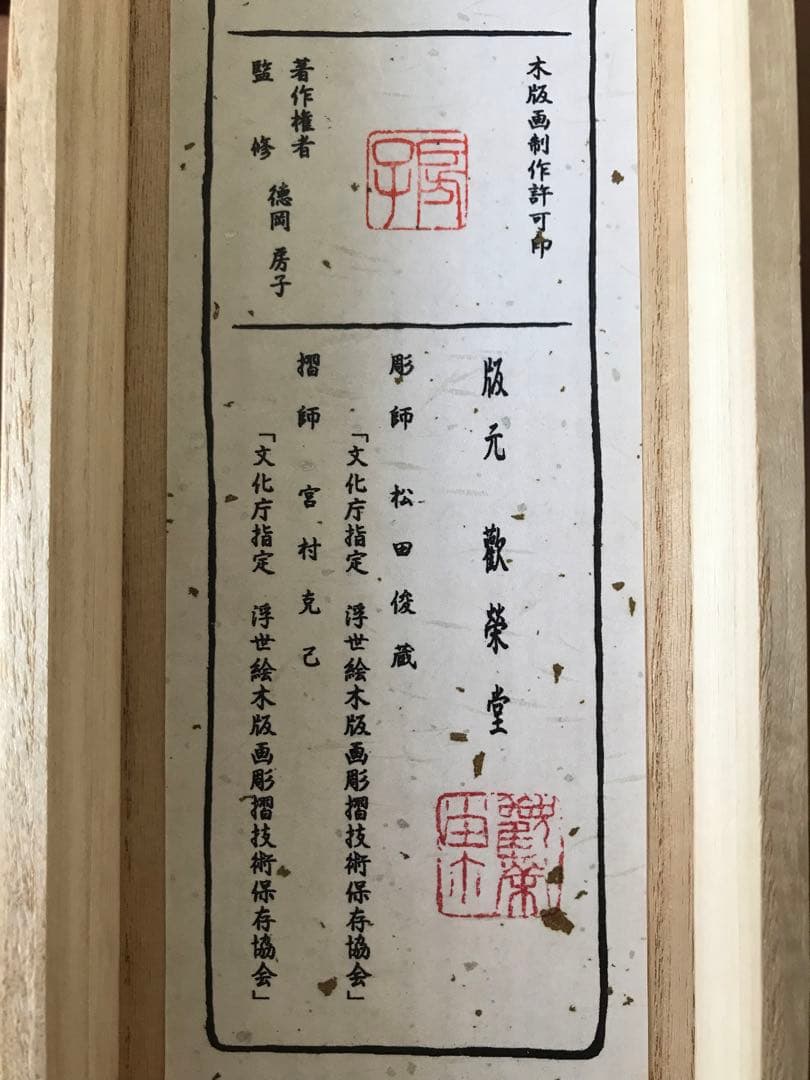 木版画制作許可印
房子
著作権者
監修
德岡 房子
版元 歡榮堂
歡榮
彫師 松田俊蔵
「文化庁指定 浮世絵木版画彫摺技術保存協会」
摺師 宮村克己
「文化庁指定 浮世絵木版画彫摺技術保存協会」